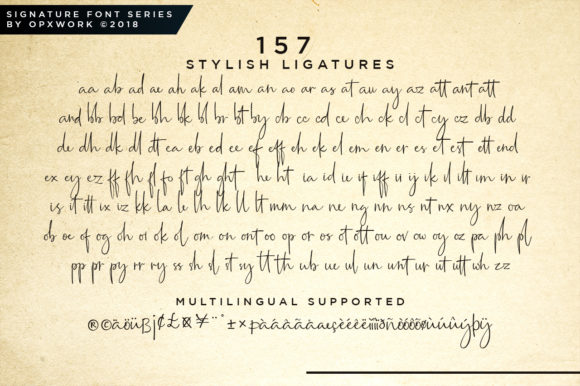 SIGNATURE FONT SERIES
BY OPXWORK ©2018
157
STYLISH LIGATURES
aa ab ad ae ah ak al am an ao ar as at au ay az att ant att
and bb bd be bh bk bl br bt by cb cc cd ce ch ck cl ct cy cz db dd
de dh dk dl dt ea eb ed ee ef eff eh ek el em en er es et est ett end
ex ey ez ff fh fl fo ft gh ght he ht ia id ie if iff ii ij ik il ilt im in ir
is it itt ix iz kk la le lh lk ll lt mm na ne ng nn ns nt nx ny nz oa
ob oe of og oh oi ok ol om on ont oo op or os ot ott ou ov ow oy oz pa ph pl
pp pr py rr ry ss sh sl st sy tt th ub ue ul un unt ur ut utt wh zz
MULTILINGUAL SUPPORTED
®©äöüßj¢£¤¥¨°±×þàáâãäåæçèéêëìíîïðñòóôõøùúûýþÿ